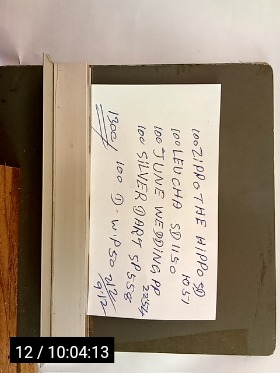 100 ZIPPO THE HIPPO SD
10.51
100 LEUCHA SD 1150
100 JUNE WEDDING PP
2254
100 SILVER DART SP 558
1300/ 100 D. W.P50 2/2/
9.12
12 / 10:04:13